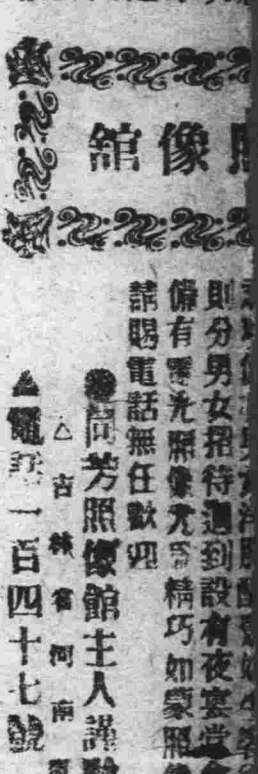 像館
則分男女招待週到設有夜宴堂
備有電光照像尤為精巧如蒙照
請賜電話無任歡迎
同芳照像館主人謹
△吉林省河南
▲電話一百四十七號